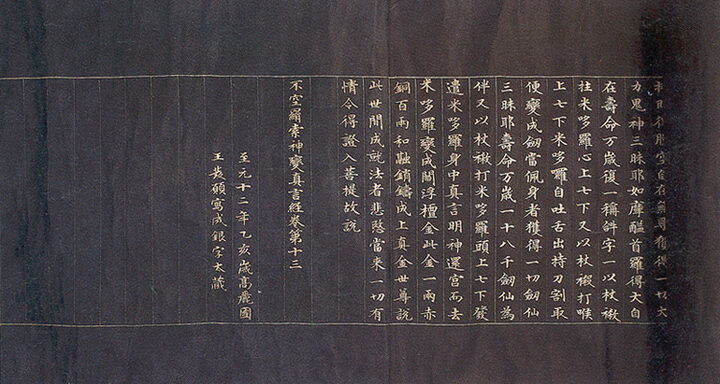 空自在無导獲得一切大
力鬼神三昧耶如摩醯首羅得大自
在壽命万歲復一稱𤙖字一以杖撽
拄米哆羅心上七下又以杖撽打喉
上七下米哆囉自吐舌出持刀割取
便變成劒當佩身者獲得一切劒仙
三昧耶壽命万歲一十八千劒仙為
伴又以杖撽打米哆羅頭上七下發
遣米哆羅身中真言明神還宮而去
米哆羅變成閻浮檀金此金一兩赤
銅百兩和融銷鑄成上真金世尊說
此世間成就法者悲愍當来一切有
情令得證入菩提故說
不空羂索神變真言經卷第十三
至元十二年乙亥歲高麗國
王發願寫成銀字大藏